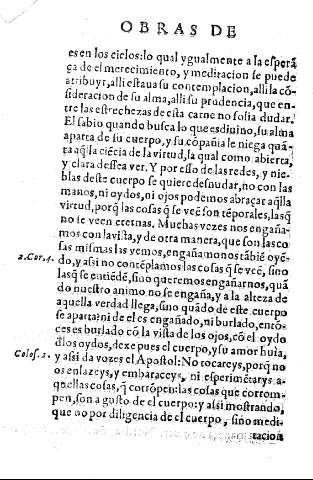 OBRAS DE
es en los cielos: lo qual ygualmente a la esperã
ça de el merecimiento, y meditacion se puede
atribuyr, alli estaua su contemplacion, alli la cõ-
sideracion de su alma, alli su prudencia, que en-
tre las estrechezas desta carne no solia dudar.
El sabio quando busca lo que es diuino, su alma
aparta de su cuerpo, y su cõpañia le niega quã-
ta aq̃lla ciẽcia de la virtud, la qual como abierta,
y clara dessea ver. Y por esso de las redes, y nie-
blas deste cuerpo se quiere desnudar, no con las
manos, ni oydos, ni ojos podemos abraçar aq̃lla
virtud, porq̃ las cosas q̃ se veẽ son tẽporales, lasq̃
no se veen eternas. Muchas vezes nos engaña-
mos con la vista, y de otra manera, que son las co
sas mismas las vemos, engañamonos tãbiẽ oyẽ-
2.Cor.4. do, y assi no contẽplamos las cosas q̃ se veẽ, sino
lasq̃ se entiẽdẽ, sino queremos engañarnos, quã
do nuestro animo no se engaña, y a la alteza de
aquella verdad llega, sino quãdo de este cuerpo
se aparta? ni de el es engañado, ni burlado, entõ-
ces es burlado cõ la vista de los ojos, cõ el oydo
d̃los oydos, dexe pues el cuerpo, y su amor huia,
Colos.2. y assi da vozes el Apostol: No tocareys, porq̃ no
os enlazeys, y embaraceys, ni esperimẽtarys a-
quellas cosas, q̃ corrõpen: las cosas que corrom-
pen, son a gusto de el cuerpo: y assi mostrando,
que no por diligencia de el cuerpo, sino medi-
tacion